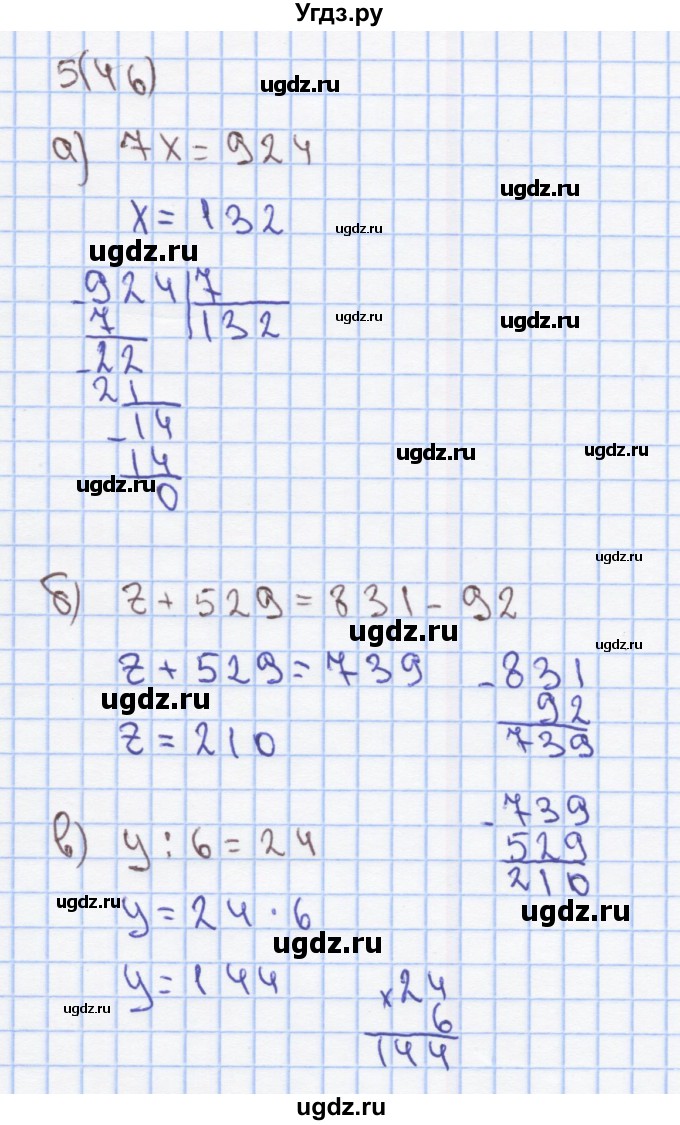 Угдз.ру
5(46)
ugdz.ru
а) 7x = 924
ugdz.ru
x = 132
ugdz.ru
ugdz.ru
-924|7
7 132
ugdz.ru
ugdz.ru
-22
21
-14
ugdz.ru
ugdz.ru
14
ugdz.ru
0
ugdz.ru
б) z + 529 = 831 - 92
ugdz.ru
ugdz.ru
z + 529 = 739
-831
ugdz.ru
92
z = 210
739
-739
в) y : 6 = 24
529
210
ugdz.ru
y = 24 · 6
ugdz.ru
ugdz.ru
y = 144
×24
ugdz.ru
6
144
ugdz.ru